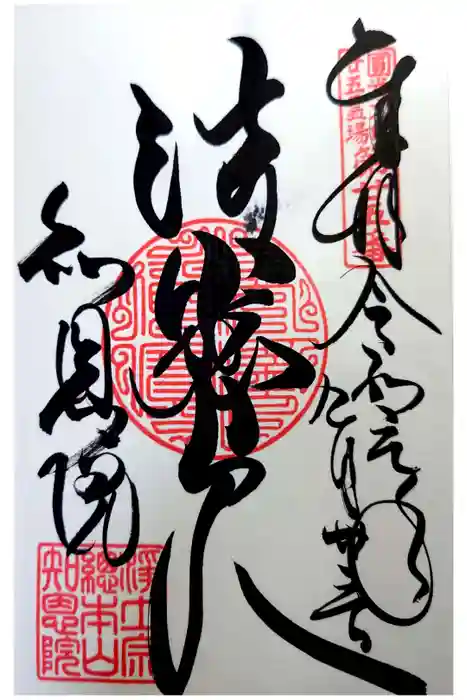 圓光大師
廿五霊場第廿五番
奉拝 令和元年
九月
法然上人
知恩院
浄土宗
總本山
知恩院